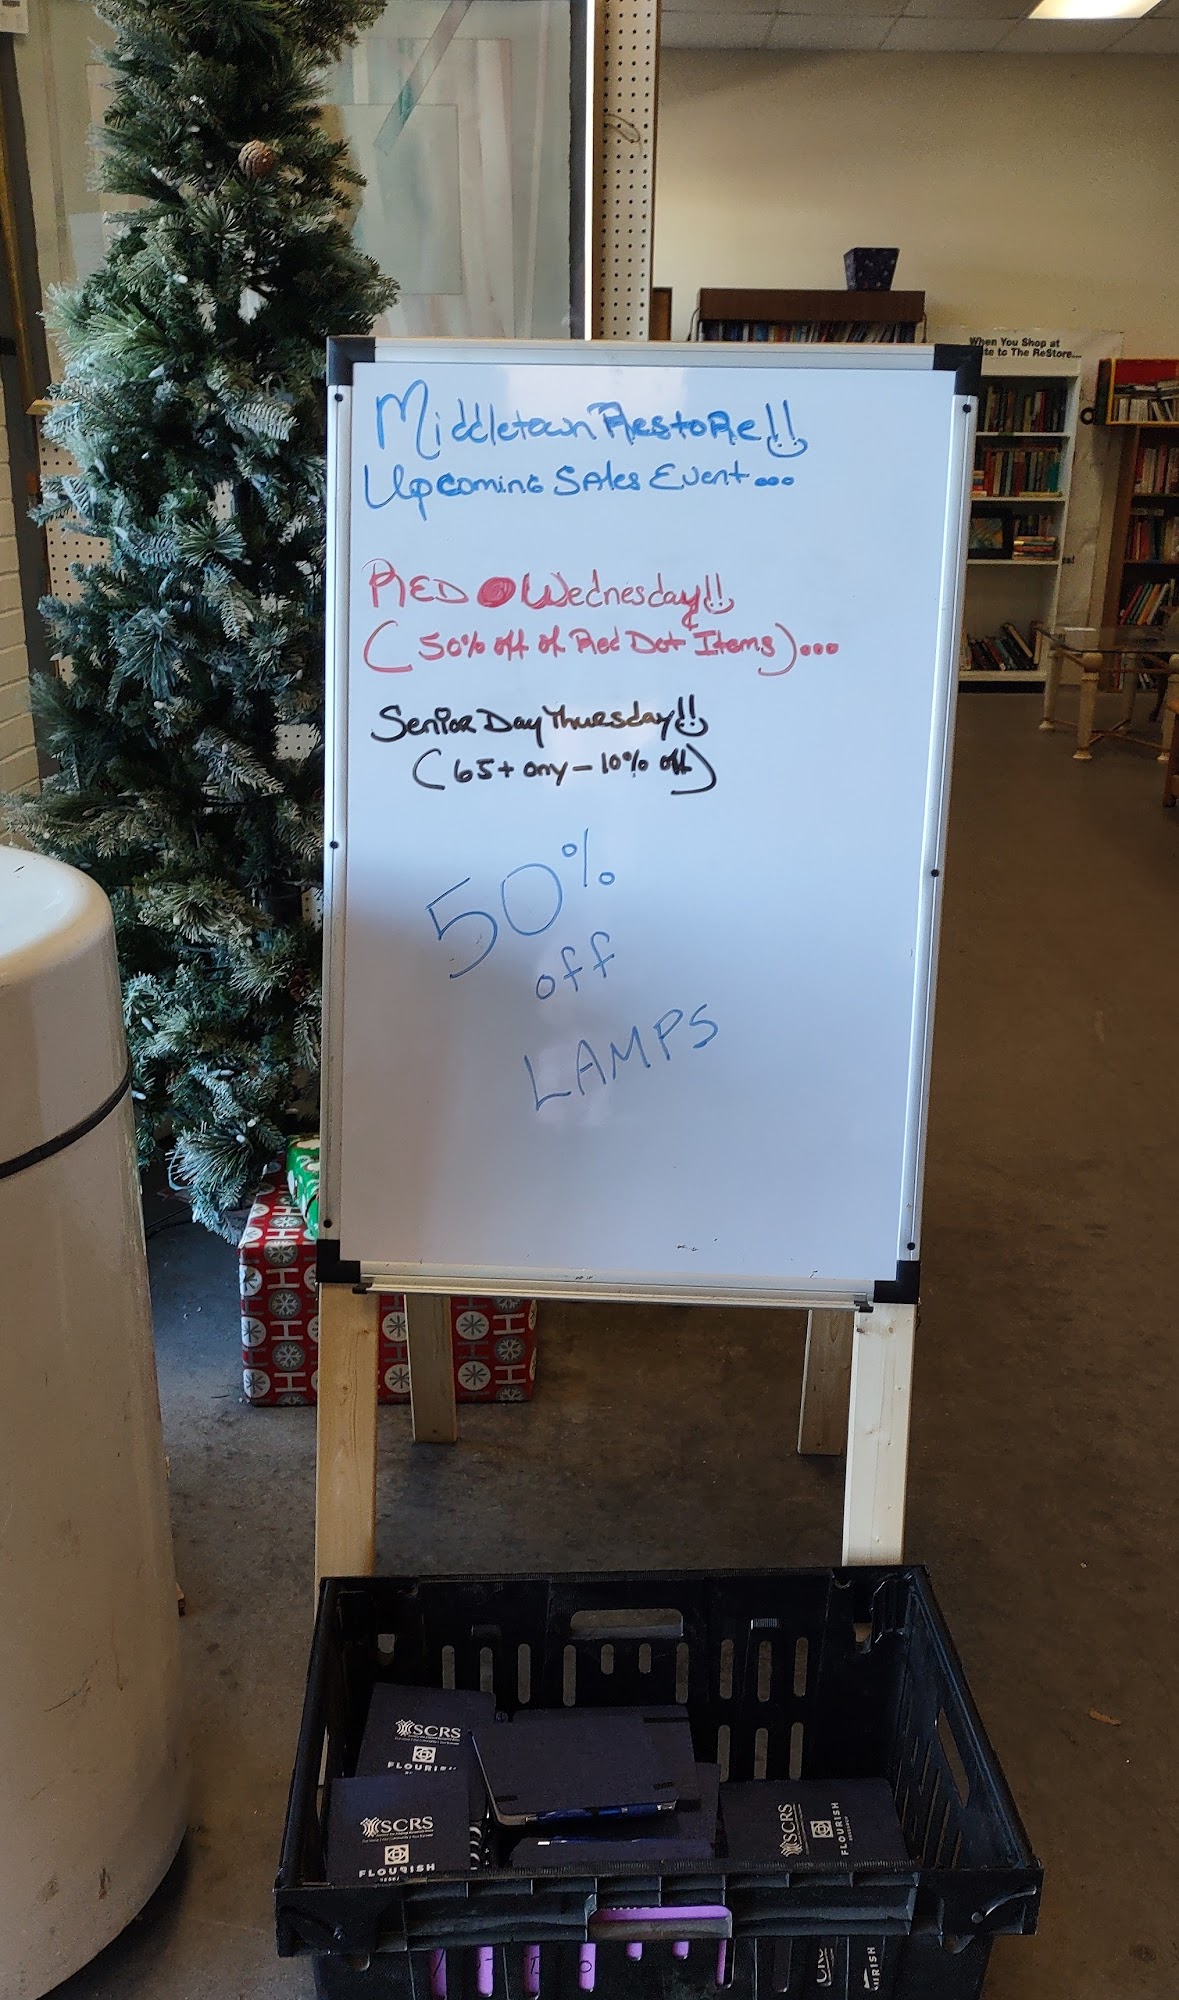 When You Shop at
te to The ReStore....
Middletown ReStoRe!!
Upcoming Sales Event...
RED Wednesday!!
(50% off of Red Dot Items)...
Senior Day Thursday!!
(65+ ony - 10% off)
50%
off
LAMPS
SCRS
FLOURISH
SCRS
FLOURISH
SCRS
FLOURISH